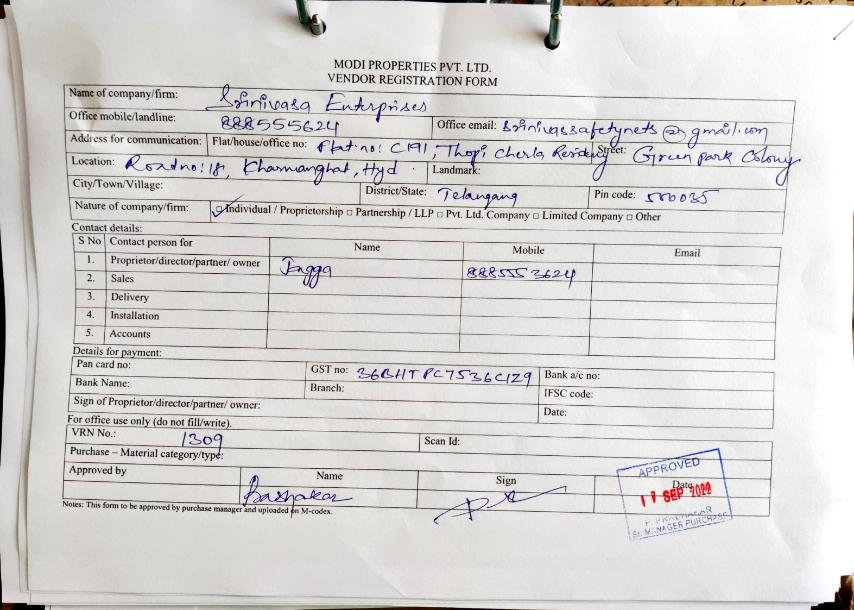 MODI PROPERTIES PVT. LTD.
VENDOR REGISTRATION FORM
Name of company/firm: Srinivasa Enterprises
Office mobile/landline: 888555624 Office email: srinivassafetynets@gmail.com
Address for communication: Flat/house/office no: Flat no: C191, Thopi Cherla Residency Street: Green park Colony
Location: Road no: 18, Kharmanghat, Hyd. Landmark:
City/Town/Village: District/State: Telangana Pin code: 500035
Nature of company/firm: ☑ Individual / Proprietorship □ Partnership / LLP □ Pvt. Ltd. Company □ Limited Company □ Other
Contact details:
S No Contact person for Name Mobile Email
1. Proprietor/director/partner/ owner Jagga 8885553624
2. Sales
3. Delivery
4. Installation
5. Accounts
Details for payment:
Pan card no: GST no: 36BHTPC7536C1Z9 Bank a/c no:
Bank Name: Branch: IFSC code:
Sign of Proprietor/director/partner/ owner: Date:
For office use only (do not fill/write).
VRN No.: 1309 Scan Id:
Purchase – Material category/type:
Approved by Name Sign Date
APPROVED
17 SEP 2022
Sr. MANAGER PURCHASE
Notes: This form to be approved by purchase manager and uploaded on M-codex.